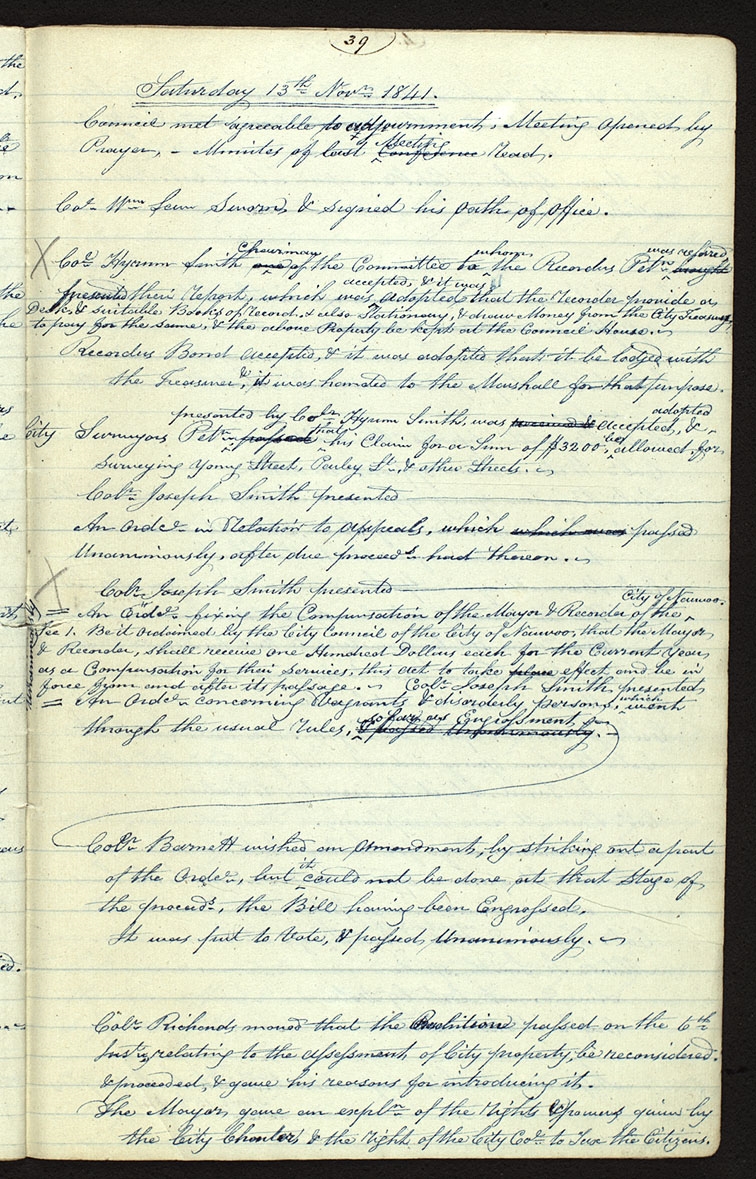 39
Saturday 13th Novr 1841.
Council met agreeable to adjournment, Meeting opened by
Prayer, – Minutes of last Conference Meeting read.
Cor. Wm Law Sworn, & signed his Oath of Office.
Cor. Hyrum Smith one Chairman of the Committee to whom the Recorders Petn. brought was referred,
presented their report, which was accepted, & it was adopted that the recorder provide a
Desk, & suitable Books of record, & also Stationary, & draw Money from the City Treasury
to pay for the same, & the above Property be kept at the Council House.
Recorders Bond accepted, & it was adopted that it be lodged with
the Treasurer, & it was handed to the Marshall for that purpose.
City Surveyors Petn. presented by Colr. Hyrum Smith, was received & accepted, & adopted,
passed that his Claim for a Sum of $3200 be allowed for
Surveying Young Street, Parley St. & other Streets.
Colr. Joseph Smith presented
An Ordce. in Relation to Appeals, which which was passed
Unanimously, after due proceeds. had thereon.
Colr. Joseph Smith presented
An Ordce. fixing the Compensation of the Mayor & Recorder of the City of Nauvoo.
Sec 1. Be it ordained by the City Council of the City of Nauvoo, that the Mayor
& Recorder, shall receive one Hundred Dollars each for the Current Year
as a Compensation for their Services, this act to take place effect and be in
force from and after its passage. Colr. Joseph Smith presented
An Ordce. concerning Vagrants & disorderly persons, which went
through the usual rules, so far as Engrossment, & passed Unanimously.
Unanimously
Colr. Barnett wished an Amendment, by striking out a part
of the Ordce., but it could not be done at that Stage of
the proceeds., the Bill having been Engrossed.
It was put to Vote, & passed Unanimously.
Colr. Richards moved that the Resolution passed on the 6th
Inst., relating to the assessment of City property, be reconsidered.
& proceeded, & gave his reasons for introducing it.
The Mayor, gave an expln. of the rights & powers given by
the City Charter, & the right of the City Col. to Tax the Citizens.